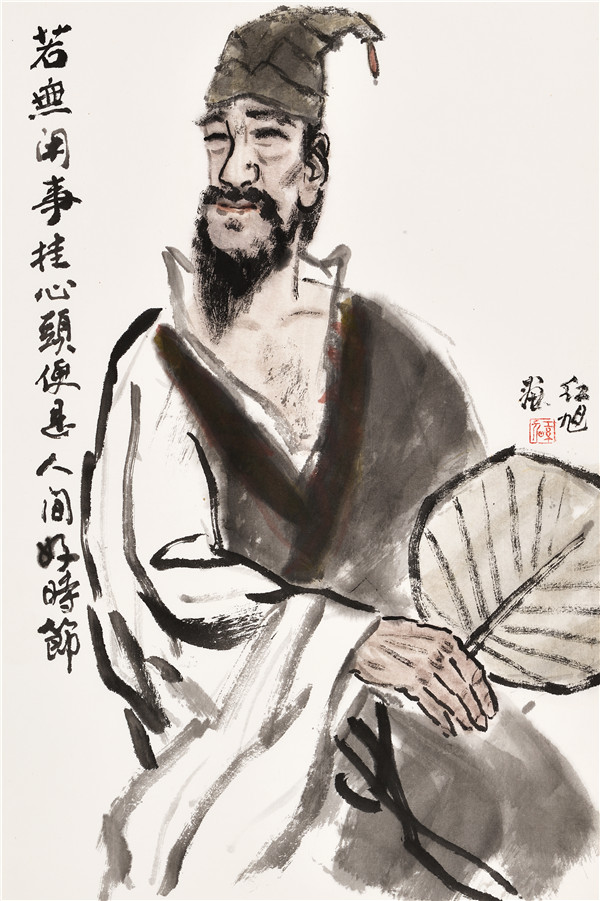 若無闲事挂心頭便是人间好時節
红旭